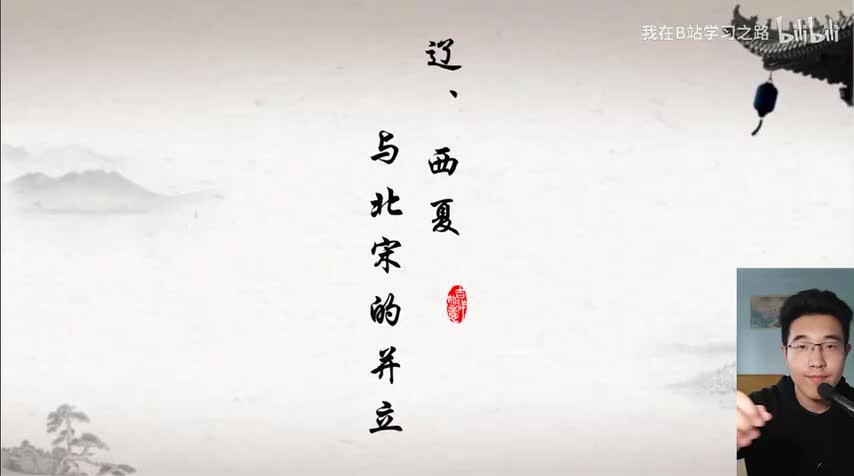 我在B站学习之路 bilibili
辽、西夏
与北宋的并立